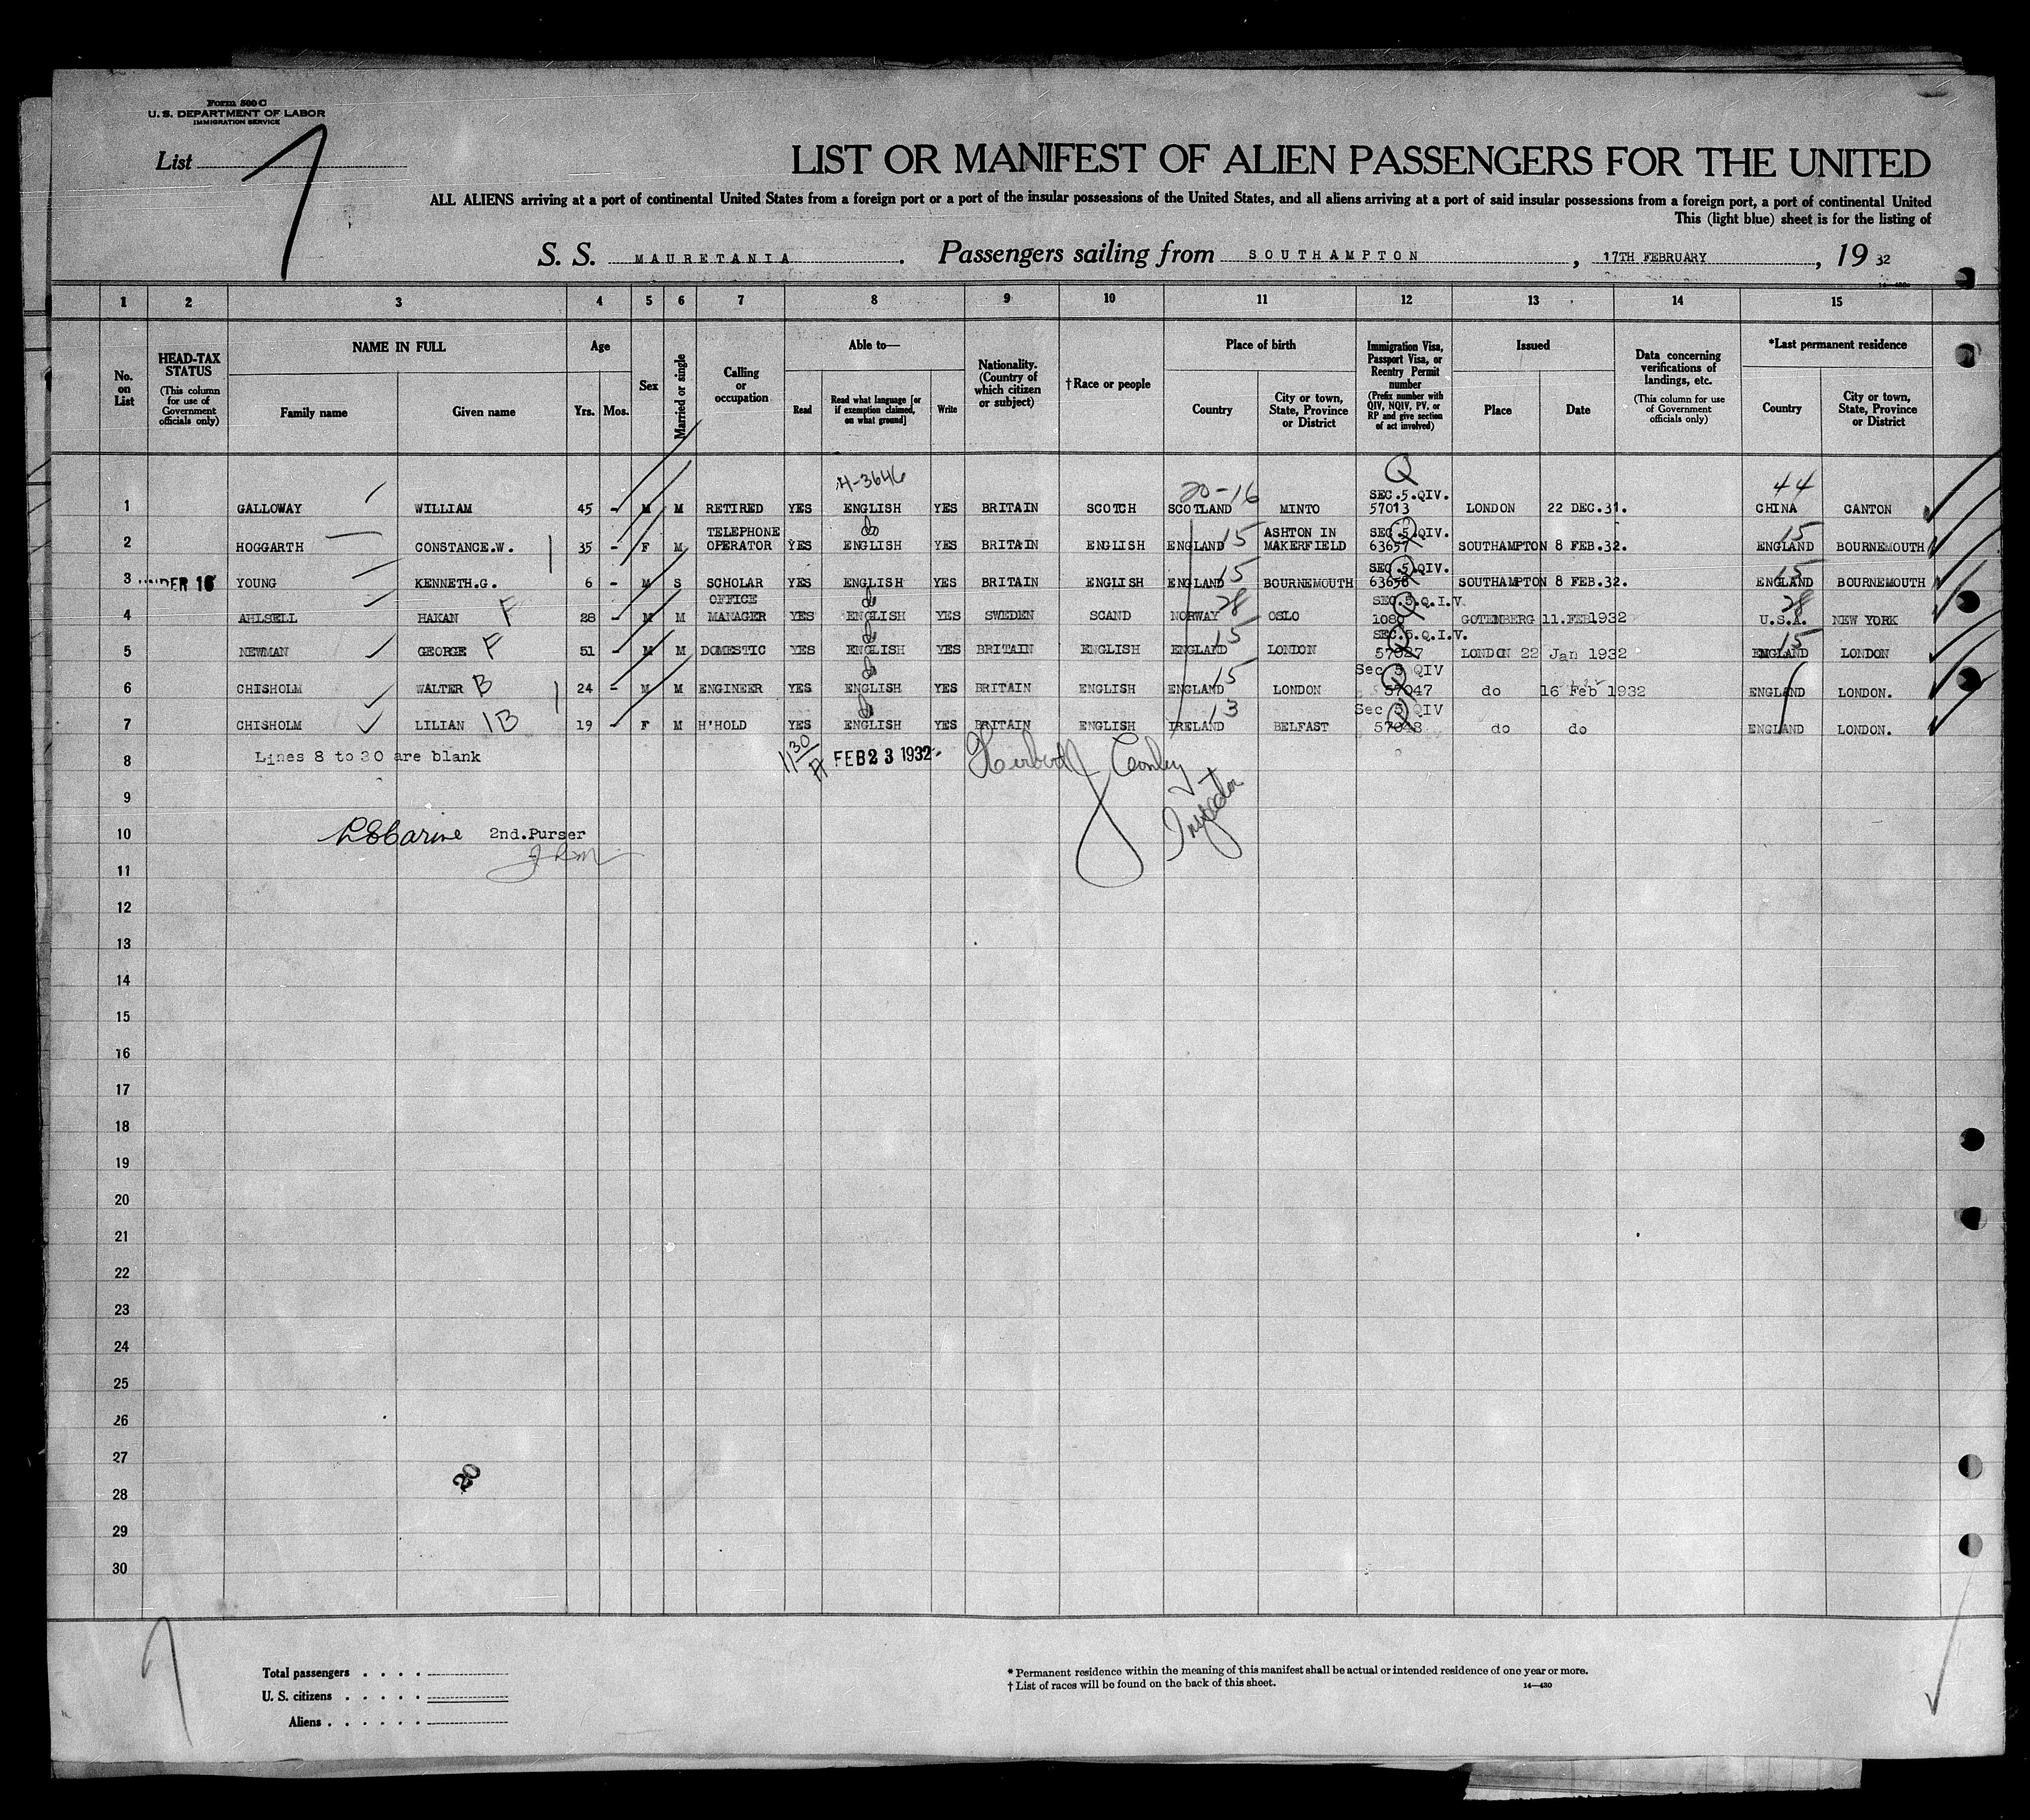 Form 500 C
U. S. DEPARTMENT OF LABOR
IMMIGRATION SERVICE
List 7
LIST OR MANIFEST OF ALIEN PASSENGERS FOR THE UNITED
ALL ALIENS arriving at a port of continental United States from a foreign port or a port of the insular possessions of the United States, and all aliens arriving at a port of said insular possessions from a foreign port, a port of continental United
This (light blue) sheet is for the listing of
S. S. MAURETANIA. Passengers sailing from SOUTHAMPTON, 17TH FEBRUARY, 19 32
1 2 3 4 5 6 7 8 9 10 11 12 13 14 15
No. on List
HEAD-TAX STATUS
(This column for use of Government officials only)
NAME IN FULL
Family name
Given name
Age
Yrs. Mos.
Sex
Married or single
Calling or occupation
Able to—
Read
Read what language [or if exemption claimed, on what ground]
Write
Nationality. (Country of which citizen or subject)
†Race or people
Place of birth
Country
City or town, State, Province or District
Immigration Visa, Passport Visa, or Reentry Permit number
(Prefix number with QIV, NQIV, PV, or RP and give section of act involved)
Issued
Place
Date
Data concerning verifications of landings, etc.
(This column for use of Government officials only)
*Last permanent residence
Country
City or town, State, Province or District
H-3646 20-16 Q 44
1 GALLOWAY WILLIAM 45 - M M RETIRED YES ENGLISH YES BRITAIN SCOTCH SCOTLAND MINTO SEC.5.QIV. 57013 LONDON 22 DEC.31. CHINA CANTON
2 HOGGARTH CONSTANCE.W. 35 - F M TELEPHONE OPERATOR YES do ENGLISH YES BRITAIN ENGLISH ENGLAND 15 ASHTON IN MAKERFIELD SEC.5.QIV. 63657 SOUTHAMPTON 8 FEB.32. 15 ENGLAND BOURNEMOUTH
3 UNDER 16 YOUNG KENNETH.G. 6 - M S SCHOLAR YES ENGLISH YES BRITAIN ENGLISH ENGLAND 15 BOURNEMOUTH SEC.5.QIV. 63658 SOUTHAMPTON 8 FEB.32. 15 ENGLAND BOURNEMOUTH
4 AHLSELL HAKAN F 28 - M M OFFICE MANAGER YES do ENGLISH YES SWEDEN SCAND NORWAY 28 OSLO SEC.5.Q.I.V. 1080 GOTENBERG 11.FEB1932 28 U.S.A. NEW YORK
5 NEWMAN GEORGE F 51 - M M DOMESTIC YES do ENGLISH YES BRITAIN ENGLISH ENGLAND 15 LONDON SEC.5.Q.I.V. 57027 LONDON 22 Jan 1932 15 ENGLAND LONDON
6 CHISHOLM WALTER B 24 - M M ENGINEER YES do ENGLISH YES BRITAIN ENGLISH ENGLAND 15 LONDON Sec 5 QIV 57047 do 16 Feb 1932 ENGLAND LONDON.
7 CHISHOLM LILIAN 1B 19 - F M H'HOLD YES do ENGLISH YES BRITAIN ENGLISH IRELAND 13 BELFAST Sec 5 QIV 57048 do do ENGLAND LONDON.
8 Lines 8 to 30 are blank 1130 A FEB 23 1932 Herbert Conley
Inspector
9
10 2nd.Purser
11
12
13
14
15
16
17
18
19
20
21
22
23
24
25
26
27
28
29
30
20
Total passengers . . . .
U. S. citizens . . . . .
Aliens . . . . . .
* Permanent residence within the meaning of this manifest shall be actual or intended residence of one year or more.
† List of races will be found on the back of this sheet.
14—430